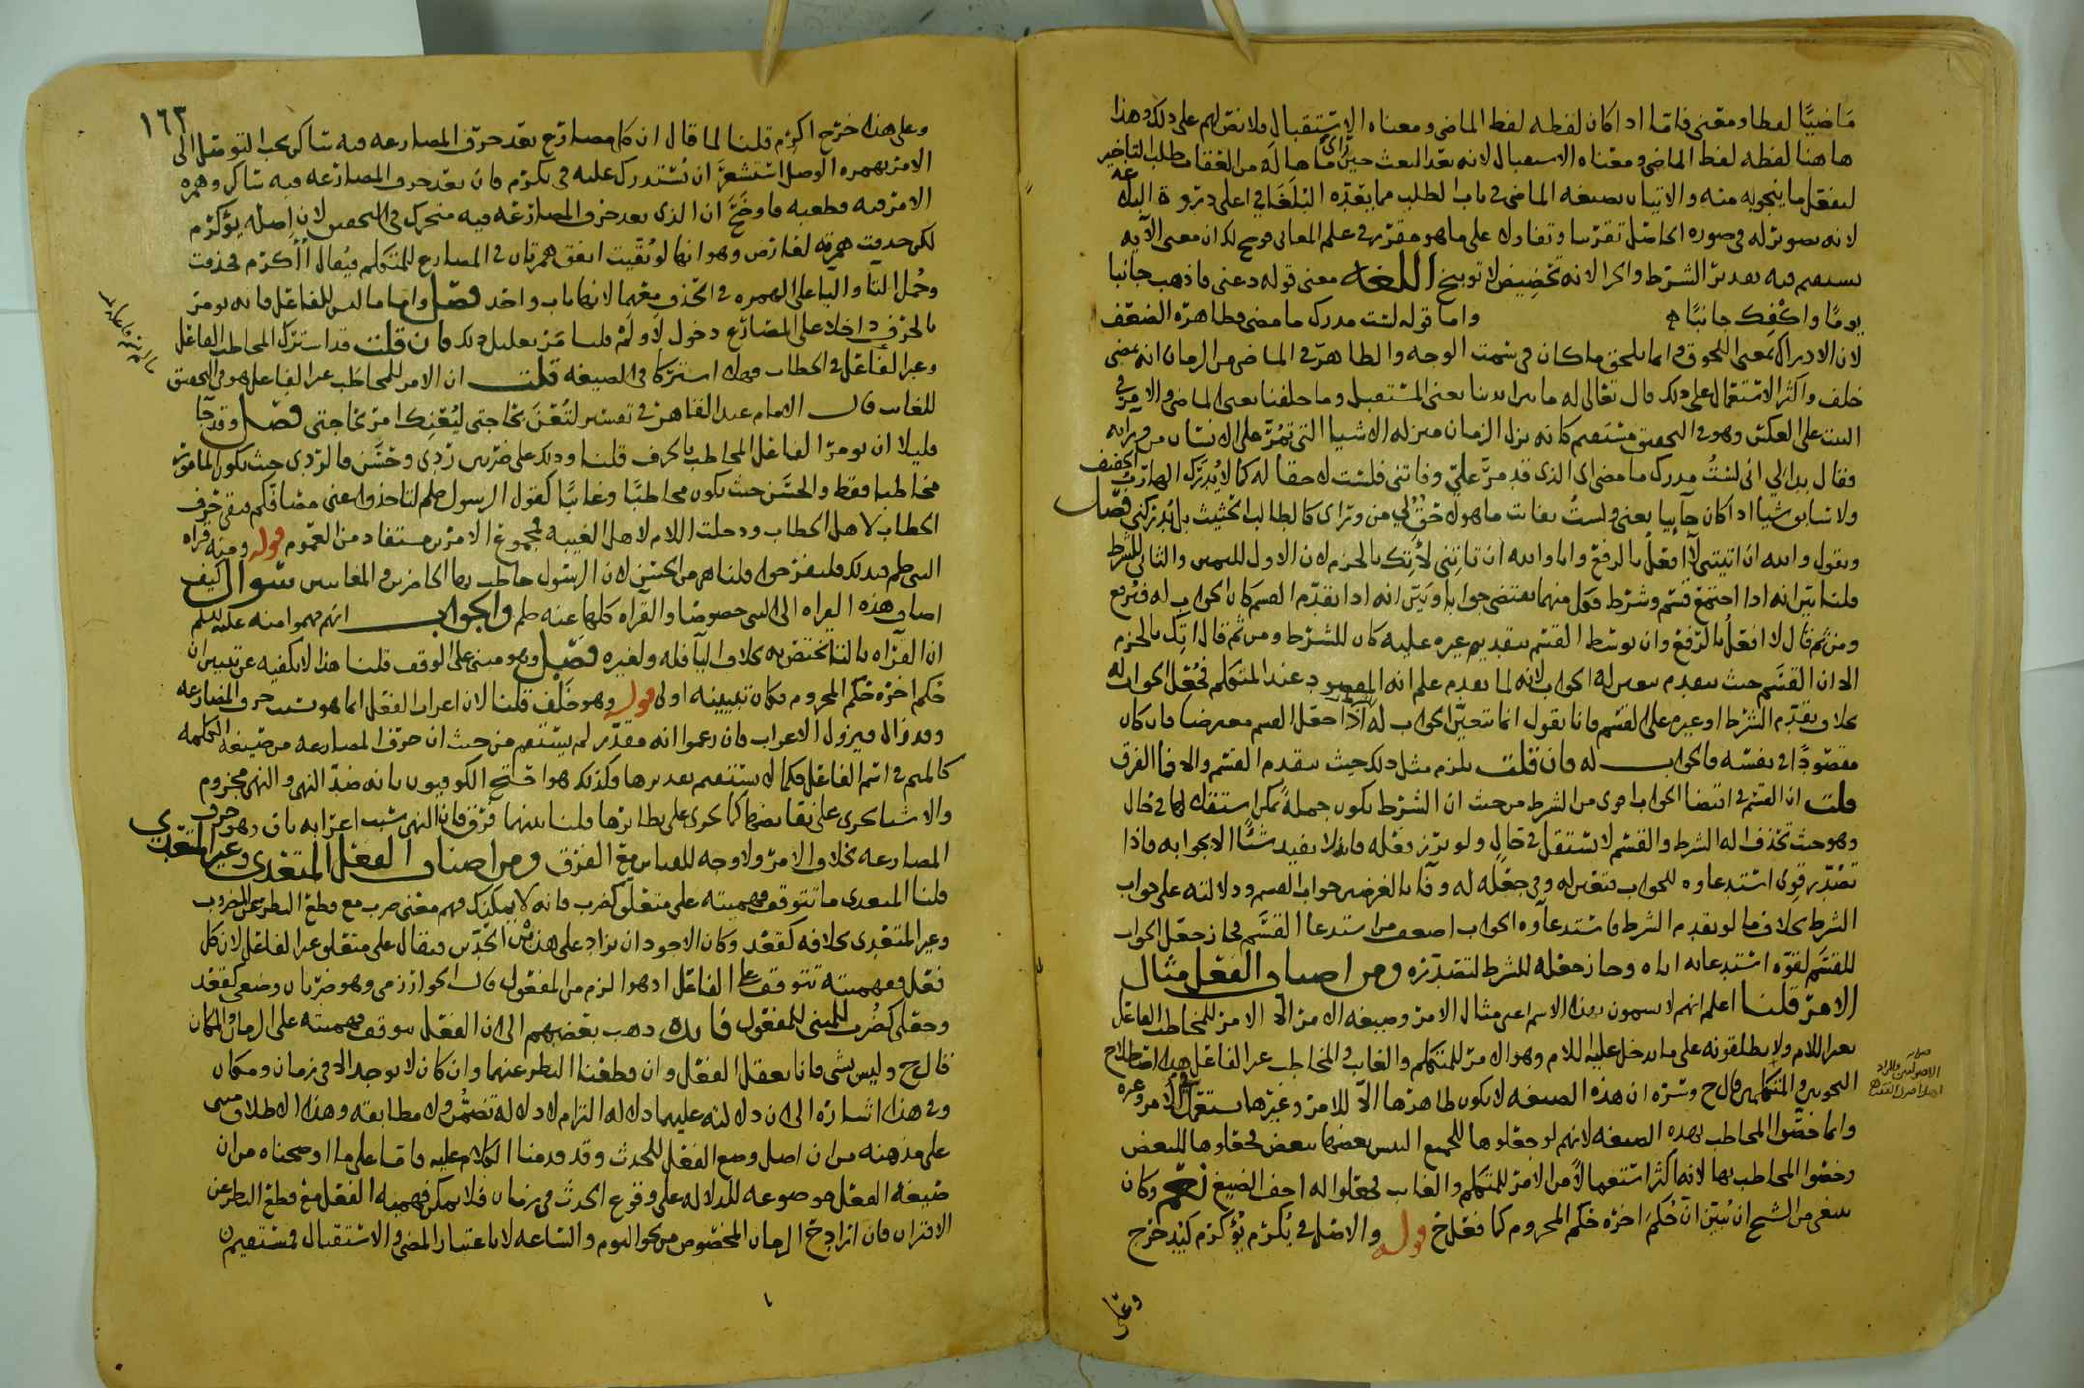 ماضيًا لفظا ومعنى فاما اذا كان لفظه لفظ الماضي ومعناه الاستقبال فلا نص لهم على ذلك وهذا
هاهنا لفظه لفظ الماضي ومعناه الاستقبال لانه بعد البعث حين راى ما هاله من الفقا فطلب التاخير
ليفعل ما ينجو به منه والاتيان بصيغة الماضي في باب الطلب مما يعده البلغا في اعلى ذروة البلاغه
لانه تصويرله في صورة الحاصل تقريبا وتفاولا على ما هو مقرر في علم المعاني فوضح لك ان معنى الآيه
يستقيم فيه تقدير الشرط والجزا لانه تحضيض لا توبيخ اللغه معنى قوله دعني فاذهب جانبا
يومًا واكفك جانبًا واما قوله لست مدرك ما مضى فظاهره الضعف
لان الادراك بمعنى اللحوق وانما يلحق ما كان في سمت الوجه والظاهر في الماضي من الزمان انه مضى
خلف واكثر الاستعمال على ذلك قال تعالى له ما بين ايدينا يعني المستقبل وما خلفنا يعني الماضي والامر في
البيت على العكس وهو في التحقيق مستقيم كانه نزل الزمان منزله الاشيا التي تمر على الانسان من ورايه
فقال بدا لي اني لست مدرك ما مضى اي الذي قد مر علي وفاتني فلست لاحقا له كما لا يدرك الهارب
ولا سابق شيا اذا كان جايا يعني ولست بفايت ما هو لاحق لي من وراي كالطالب الحثيث بل يدركني فصل
وتقول والله ان اتيتني لا افعل بالرفع وانا والله ان تاتني لا آتك بالجزم لان الاول لليمين والثاني للشرط
قلنا بين انه اذا اجتمع قسم وشرط فكل منهما يقتضي جوابا وبين انه اذا تقدم القسم كان الجواب له فرفع
ومن ثم قال لا افعل بالرفع وان توسط القسم بتقديم غيره عليه كان للشرط ومن ثم قال آتك بالجزم
الا ان القسم حيث يتقدم يتعين له الجواب لانه لما تقدم علم انه المقصود عند المتكلم فجعل الجواب له
بخلاف تقدم الشرط او غيره على القسم فانا نقول انما يتعين الجواب له اذا جعل القسم معترضا فان كان
مقصودًا في نفسه فالجواب له فان قلت يلزم مثل ذلك حيث يتقدم القسم والا فما الفرق
قلت ان القسم في اقتضا الجواب اقوى من الشرط من حيث ان الشرط يكون جملة يمكن استقلالها في حال
وهو حيث تحذف اله الشرط والقسم لا يستقل في حال ولو برز فعله فانه لا يفيد شيئا الا بجوابه فاذا
تصدر قوي استدعاوه للجواب فتعين له وفي جعله له وفا بالغرضين جواب القسم ودلالته على جواب
الشرط بخلاف ما لو تقدم الشرط فاستدعاوه الجواب اضعف من استدعا القسم فجاز جعل الجواب
للقسم لقوة استدعايه اياه وجاز جعله للشرط لتصدره ومن اصناف الفعل مثال
الامر قلنا اعلم انهم لا يسمون بهذا الاسم اعني مثال الامر وصيغه الامر الا الامر للمخاطب الفاعل
بغير اللام ولا يطلقونه على ما يدخل عليه اللام وهو الامر للمتكلم والغايب والمخاطب غير الفاعل هذا اصطلاح
النحويين والمتكلمين قال ح وسره ان هذه الصيغه لا يكون ظاهرها الا للامر وغيرها يستعمل في الامر وغيره
وانما خصوا المخاطب بهذه الصيغه لانهم لو جعلوها للجميع التبس بعضها ببعض فجعلوها للبعض
وخصوا المخاطب بها لانها كثر استعمالا من الامر للمتكلم والغايب فجعلوا له اخف الصيغ نعم وكان
ينبغي من الشيخ ان يبين ان حكم اخره حكم المجزوم كما فعل ح قوله والاصل في يكرم يؤكرم كيدحرج
وعلى
صوابه الاصوليين والمراد اهل اصول الفقه
١٦٣
وعلى هذا خرج اكرم قلنا لما قال ان كل مضارع بعد حرف المضارعه فيه ساكن يجب التوصل الى
الامر بهمزه الوصل استشعر ان يستدرك عليه في يكرم فان بعد حرف المضارعه فيه ساكن وهمزه
الامر فيه قطعيه فاوضح ان الذي بعد حرف المضارعه فيه متحرك في التحقيق لان اصله يؤكرم
لكن حذفت همزته لعارض وهو انها لو بقيت اتفق همزتان في المضارع للمتكلم فيقال اأكرم فحذفت
وحمل التا واليا على الهمزه في الحذف معهما لانها باب واحد فصل واما ما ليس للفاعل فانه يومر
بالحرف داخلا على المضارع دخول لا ولم قلنا مر تعليل ذلك فان قلت قد اشترك المخاطب الفاعل
وغير الفاعل في الخطاب فهلا اشتركا في الصيغه قلت ان الامر للمخاطب غير الفاعل هو في التحقيق
للغايب قال الامام عبد القاهر في تفسير لتعن بحاجتي ليعنك امر بحاجتي فصل وقد جا
قليلا ان يومر الفاعل المخاطب بالحرف قلنا وذلك على ضربين ردي وحسن فالردي حيث يكون المامور
مخاطبا فقط والحسن حيث يكون مخاطبًا وغايبًا كقول الرسول صلعم لتاخذوا يعني مصافكم فبقي حرف
الخطاب لاهل الخطاب ودخلت اللام لاهل الغيبه فمجموع الامرين مستفاد من العموم قوله ومنه قراة
النبي صلعم فبذلك فلتفرحوا قلنا هي من الحسن لان الرسول خاطب بها الحاضرين والغايبين سوال كيف
اضاف هذه القراه الى النبي خصوصا والقراه كلها عنه صلعم والجواب انهم فهموا منه عليه السلم
ان القراه بالتا تختص به بخلاف اليا فله ولغيره فصل وهو مبني على الوقف قلنا هذا لا يكفيه عن تبيين ان
حكم اخره حكم المجزوم فكان تبيينه اولى قوله وهو خلف قلنا لان اعراب الفعل انما هو بسبب حرف المضارعه
وقد زال فيزول الاعراب فان زعموا انه مقدر لم يستقم من حيث ان حرف المضارعه من صيغه الكلمه
كالميم في اسم الفاعل فكما لا يستقيم تقديرها فكذلك هو احتج الكوفيون بانه ضد النهي والنهي مجزوم
والاشيا تجري على نقايضها كما تجري على نظايرها قلنا بينهما فرق فان النهي سبب اعرابه باق وهو حرف
المضارعه بخلاف الامر ولا وجه للقياس مع الفرق ومن اصناف الفعل المتعدي وغير المتعدي
قلنا المتعدي ما تتوقف فهميته على متعلق كضرب فانه لا يمكنك فهم معنى ضرب مع قطع النظر عن المضروب
وغير المتعدي بخلافه كقعد وكان الاجود ان يزاد على هذين الحدين فيقال على متعلق غير الفاعل لان كل
فعل ففهميته تتوقف على الفاعل اذ هو الزم من المفعول قال الخوارزمي وهو ضربان وضعي كقعد
وجعلي كضرب المبني للمفعول فايده ذهب بعضهم الى ان الفعل يتوقف فهميته على الزمان والمكان
قال ح وليس بشي فانا نعقل الفعل وان قطعنا النظر عنهما وان كان لا يوجد الا في زمان ومكان
وفي هذا اشاره الى ان دلالته عليهما دلاله التزام لا دلاله تضمن ولا مطابقه وهذا الاطلاق مبني
على مذهبه من ان اصل وضع الفعل للحدث وقد قدمنا الكلام عليه فاما على ما اوضحناه من ان
صيغه الفعل موضوعه للدلاله على وقوع الحدث في زمان فلا يمكن فهميه الفعل مع قطع النظر عن
الاقتران فان اراد ح الزمان المخصوص من نحو اليوم والساعه لا باعتبار المضي والاستقبال فمستقيم